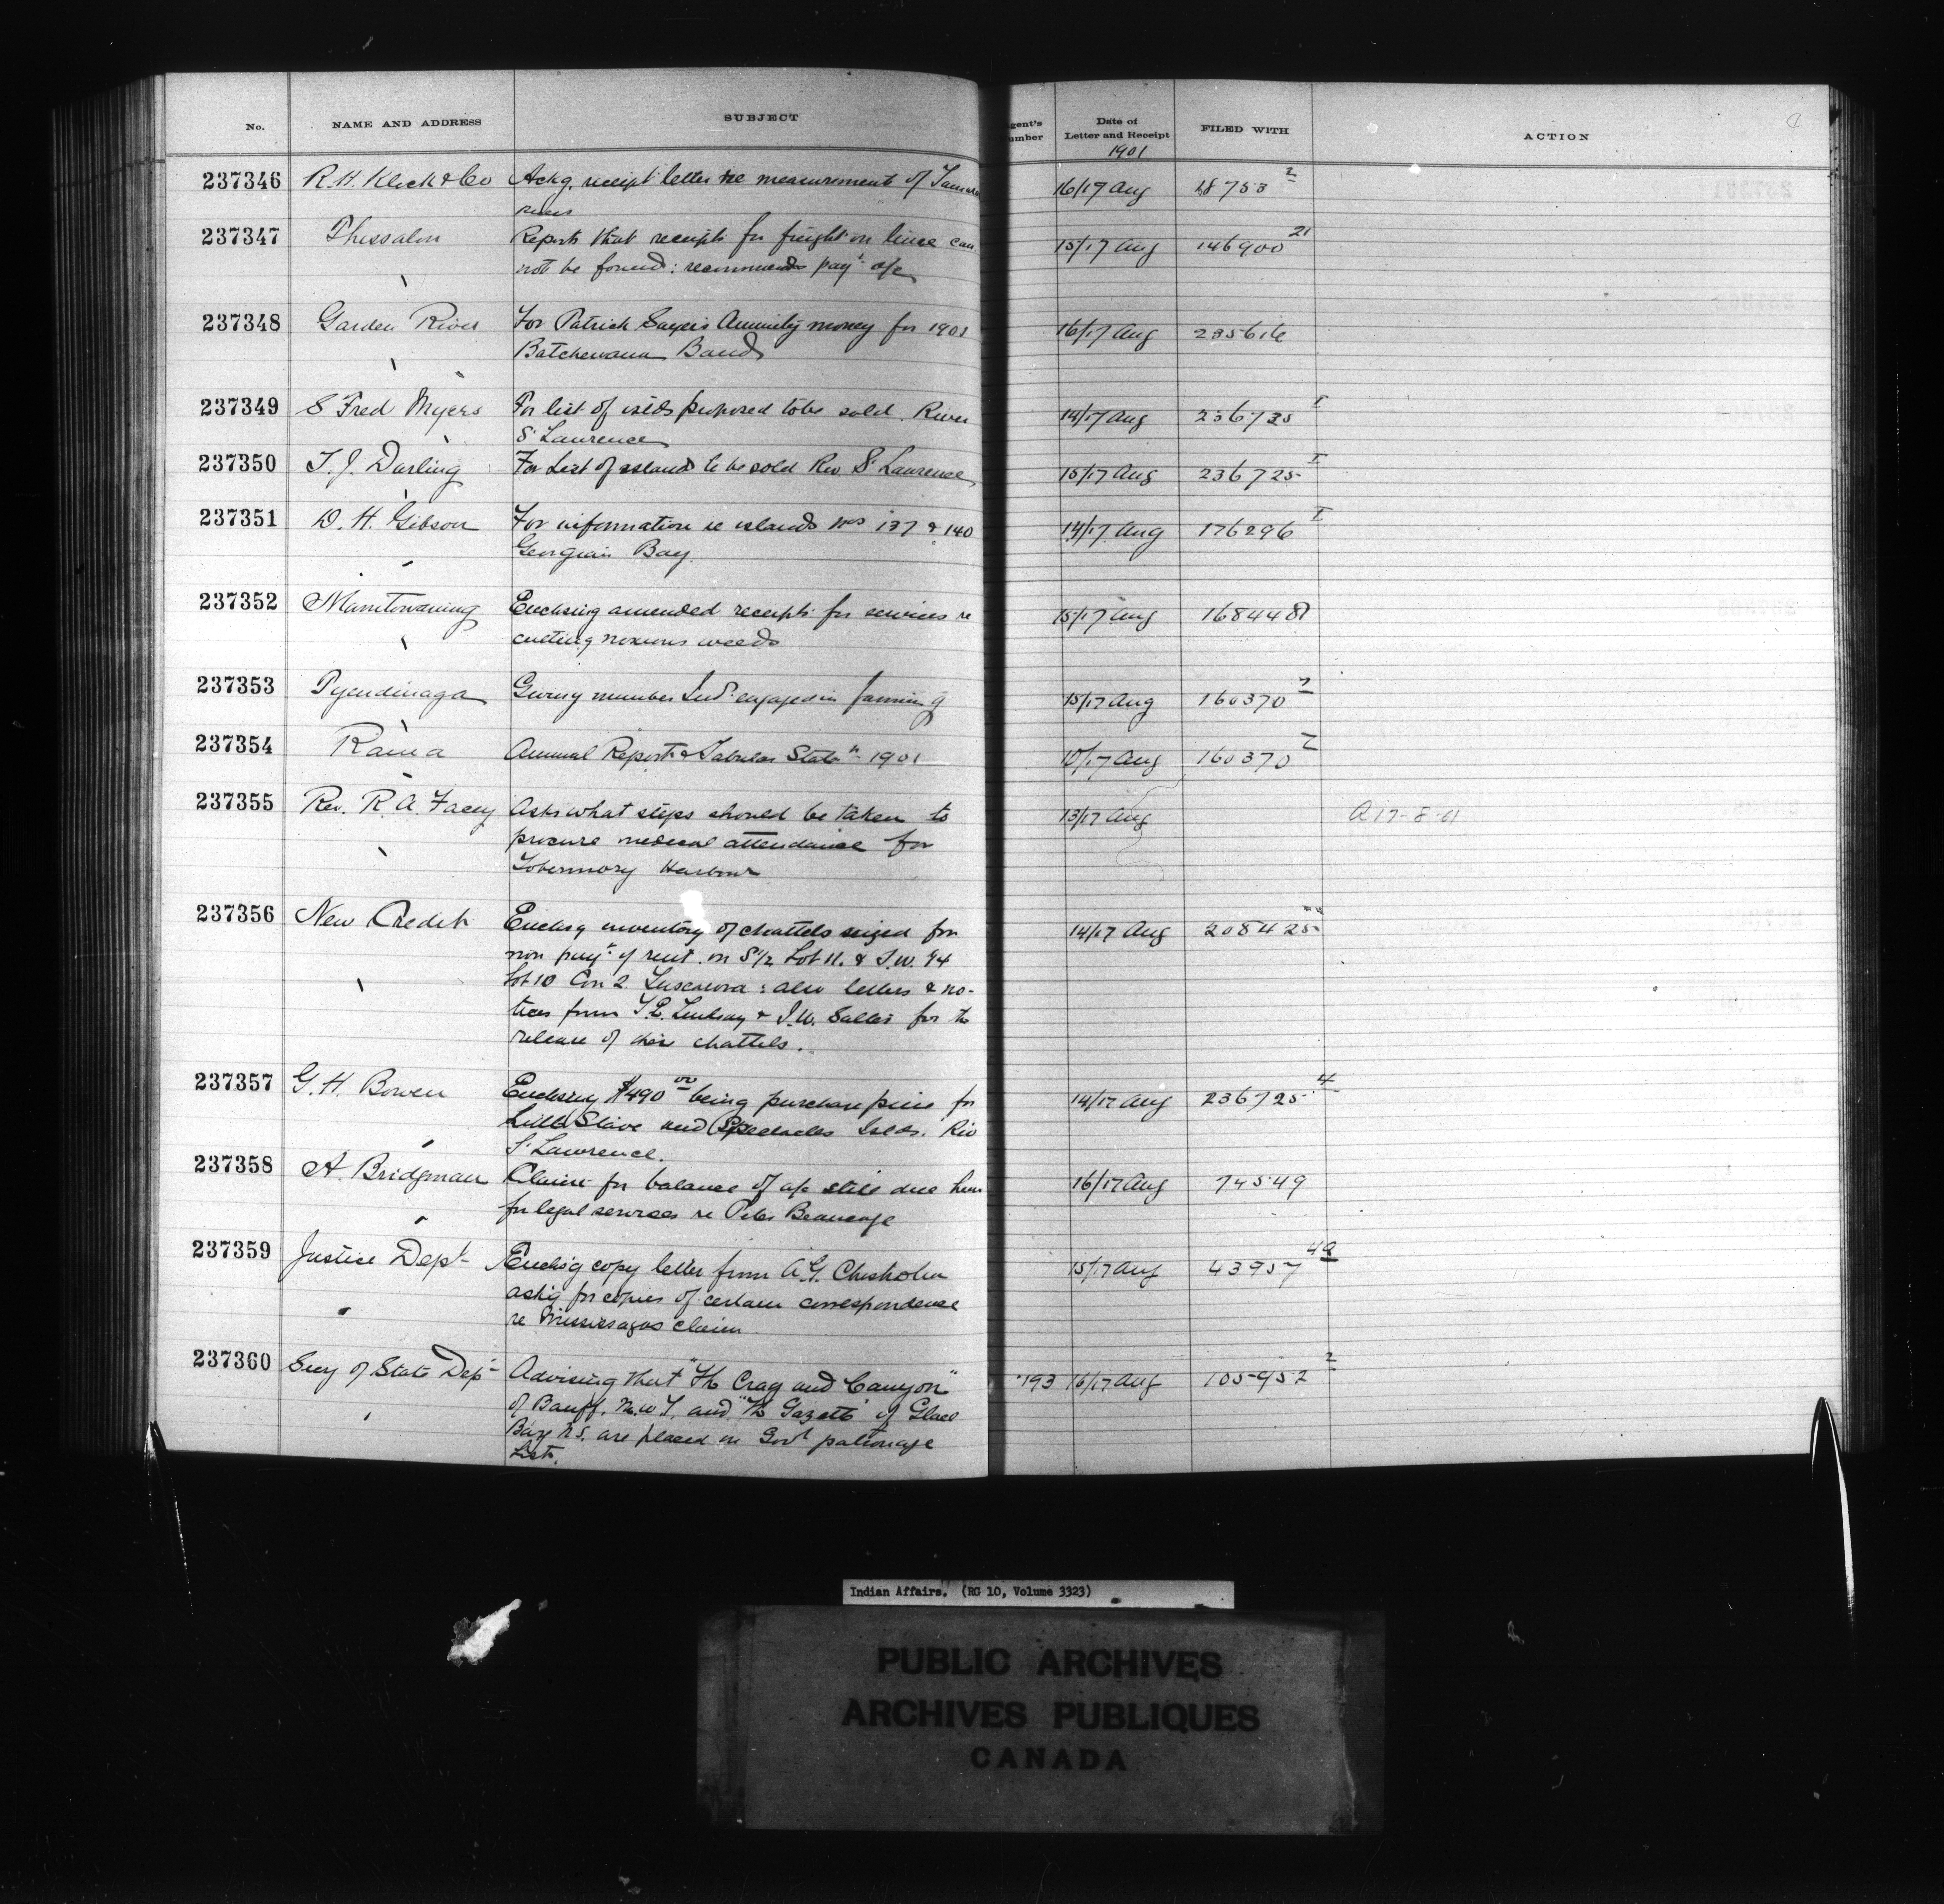 No. NAME AND ADDRESS SUBJECT Agent's Number Date of Letter and Receipt FILED WITH ACTION
1901
237346 R.H. Klock & Co Ackg. receipt letter re measurement of 16/17 Aug 28753 2
237347 Thessalon Reports that receipts for freight on lime can- 15/17 Aug 146900 21
not be found: recommends payt a/c
237348 Garden River For Patrick Sayers Annuity money for 1901 16/17 Aug 235616
Batchewana Band
237349 S Fred Myers For list of islds proposed to be sold. River 14/17 Aug 236725 I
St Lawrence
237350 T. J. Darling For List of islands to be sold Riv St Lawrence 15/17 Aug 236725 I
237351 D. H. Gibson For information re islands nos 137 & 140 14/17 Aug 176296 I
Georgian Bay.
237352 Manitowaning Enclosing amended receipts for services re 15/17 Aug 168448
cutting noxious weeds
237353 Tyendinaga Giving number Inds engaged in farming 15/17 Aug 160370 7
237354 Rama Annual Report & Tabular Statnt 1901 10/17 Aug 160370 7
237355 Rev. R. A. Facey Asks what steps should be taken to 13/17 Aug A 17-8-01
procure medical attendance for
Tobermory Harbour
237356 New Credit Enclosg inventory of chattels seized for 14/17 Aug 208425
non payt of rent on S½ Lot 11. & S.W. ¼
Lot 10 Con 2 Tuscarora: also letters & no-
tices from T.E. Lindsay & I.W. for the
release of their chattels.
237357 G. H. Bowen Enclosing $490 00 being purchase price for 14/17 Aug 236725 4
Little Slave and Spectacles Islds. Riv
St Lawrence.
237358 A. Bridgman Claim for balance of a/c still due him 16/17 Aug 74549
for legal services re Peter Beaucage
237359 Justice Dept Enclosg copy letter from A.G. Chisholm 15/17 Aug 43957 49
askig for copies of certain correspondence
re Mississagas claim
237360 Secy of State Dept Advising that "The Crag and Canyon" 193 16/17 Aug 105952 2
of Banff. N.W.T. and "The Gazette" of Glace
Bay N.S. are placed on Govt patronage
List.
Indian Affairs. (RG 10, Volume 3323)
PUBLIC ARCHIVES
ARCHIVES PUBLIQUES
CANADA